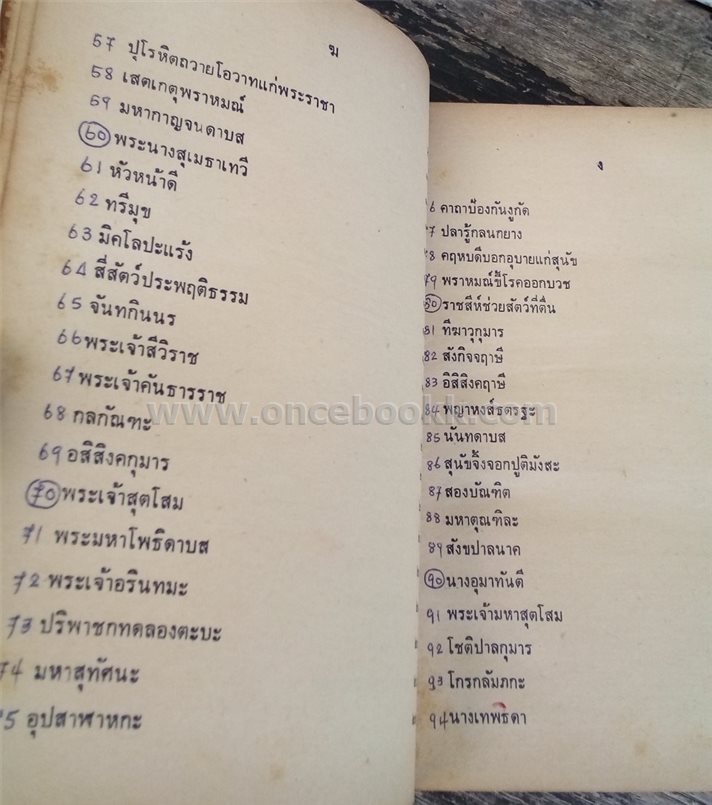 ฆ
57 ปุโรหิตถวายโอวาทแก่พระราชา
58 เสตเกตุพราหมณ์
59 มหากาญจนดาบส
60 พระนางสุเมธาเทวี
61 หัวหน้าดี
62 ทรีมุข
63 มิคโลปะแร้ง
64 สี่สัตว์ประพฤติธรรม
65 จันทกินนร
66 พระเจ้าสีวิราช
67 พระเจ้าคันธารราช
68 กลกัณฑะ
69 อสิสิงคกุมาร
70 พระเจ้าสุตโสม
71 พระมหาโพธิดาบส
72 พระเจ้าอรินทมะ
73 ปริพาชกทดลองตะบะ
74 มหาสุทัศนะ
75 อุปสาฬาหกะ
ง
76 คาถาป้องกันงูกัด
77 ปลารู้กลนกยาง
78 คฤหบดีบอกอุบายแก่สุนัข
79 พราหมณ์ขี้โรคออกบวช
80 ราชสีห์ช่วยสัตว์ที่ตื่น
81 ทีฆาวุกุมาร
82 สังกิจจฤาษี
83 อิสิสิงคฤาษี
84 พญาหงส์ธตรฐะ
85 นันทดาบส
86 สุนัขจิ้งจอกปูติมังสะ
87 สองบัณฑิต
88 มหาตุณฑิละ
89 สังขปาลนาค
90 นางอุมาทันตี
91 พระเจ้ามหาสุตโสม
92 โชติปาลกุมาร
93 โกรกลัมภกะ
94 นางเทพธิดา
www.oncebookk.com